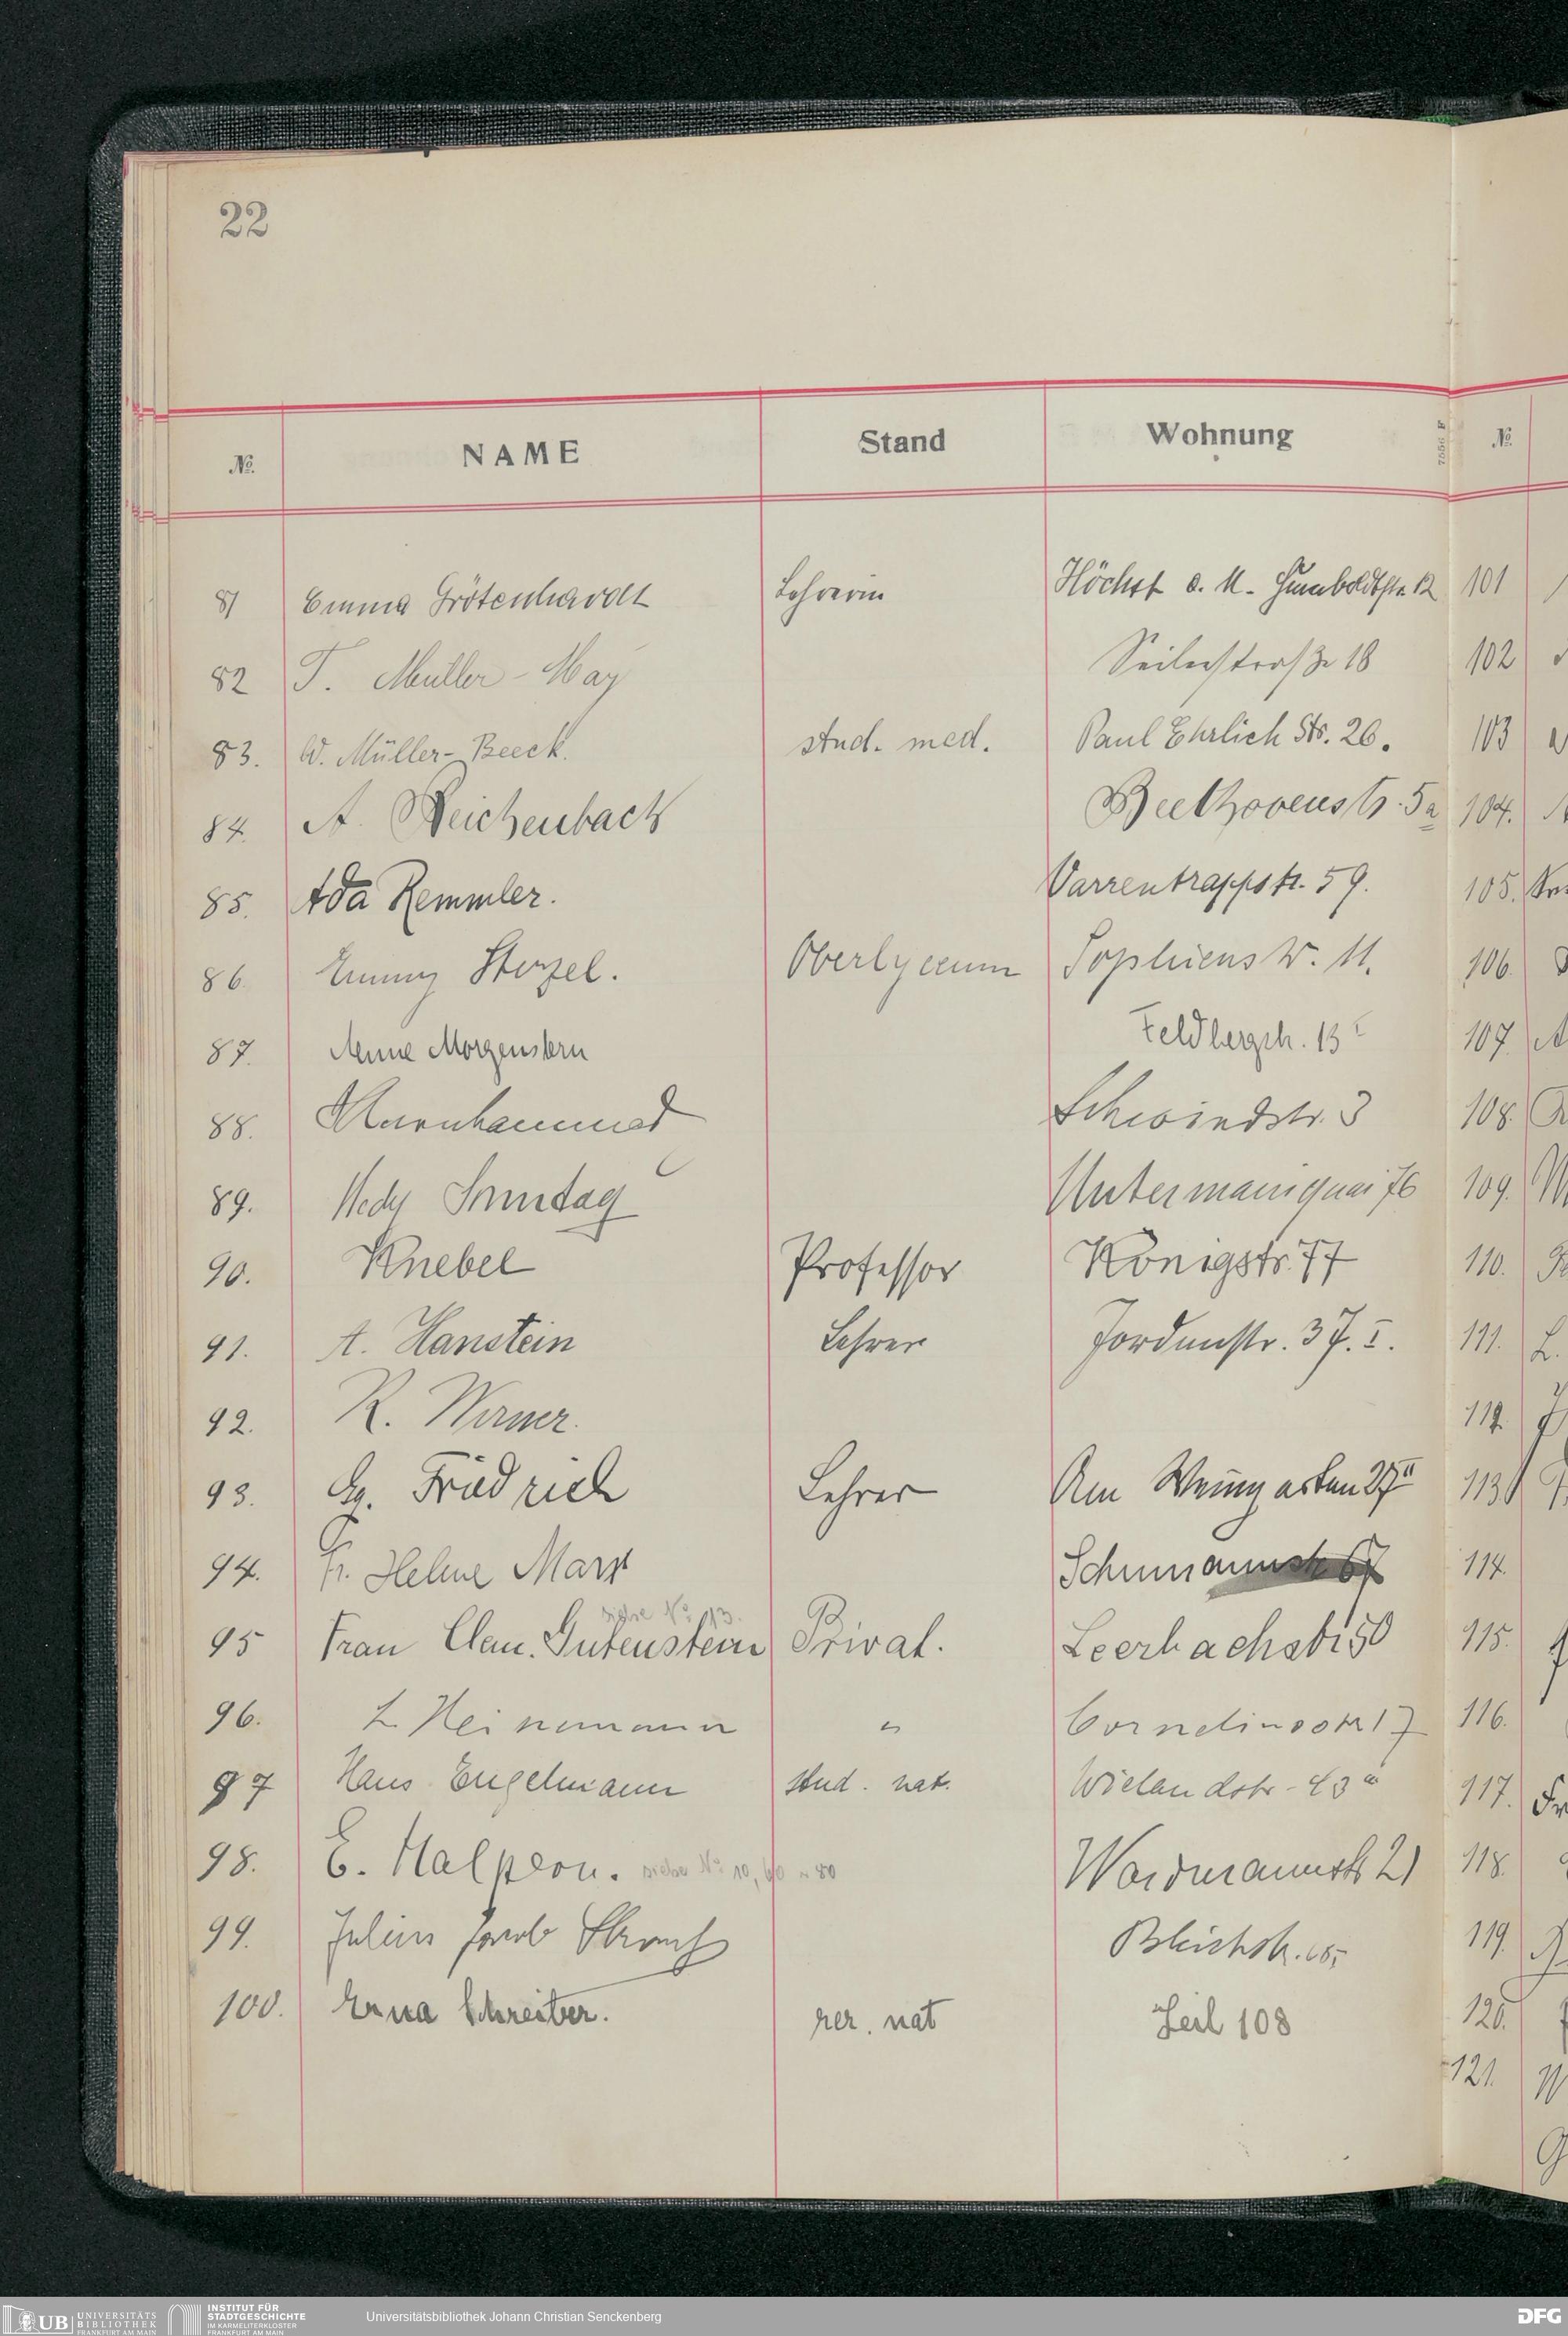 22
№ NAME Stand Wohnung №
81 Emma Grötenhardt Lehrerin Höchst a. M. Humboldtstr. 12 101
82 T. Müller-May Seilerstraße 18 102
83. W. Müller-Beeck. stud. med. Paul Ehrlich Str. 26. 103
84. A. Reichenbach Beethovenstr. 5a 104.
85. Ada Remmler. Varrentrappstr. 59. 105.
86. Emmy Sterzel. Oberlyceum Sophienstr. 11. 106.
87. Anne Morgenstern Feldbergstr. 13 107.
88. Schwindstr. 3 108.
89. Hedy Sonntag Untermainquai 76 109.
90. Knebel Professor Königstr. 77 110.
91. A. Hanstein Lehrer Jordanstr. 37. I. 111.
92. K. Werner. 112.
93. Gg. Friedrich Lehrer Am Weingarten 27 II 113
94. Fr. Helene Marx Schumannstr 67 114.
siehe No 13.
95 Frau Clem. Gutenstein Privat. Leerbachstr 50 115.
96. L Heinemann " Corneliusstr 17 116.
97 Hans Engelmann stud. nat. Wielandstr. 43a 117.
98. E. Halpern. siehe No 10, 60 u 80 Weidmannstr 21 118.
99. Julius Jacob Strauß Bleichstr. 119.
100. Erna Schreiber. rer. nat Zeil 108 120.
121.
UB UNIVERSITÄTS BIBLIOTHEK FRANKFURT AM MAIN
INSTITUT FÜR STADTGESCHICHTE IM KARMELITERKLOSTER FRANKFURT AM MAIN
Universitätsbibliothek Johann Christian Senckenberg
DFG